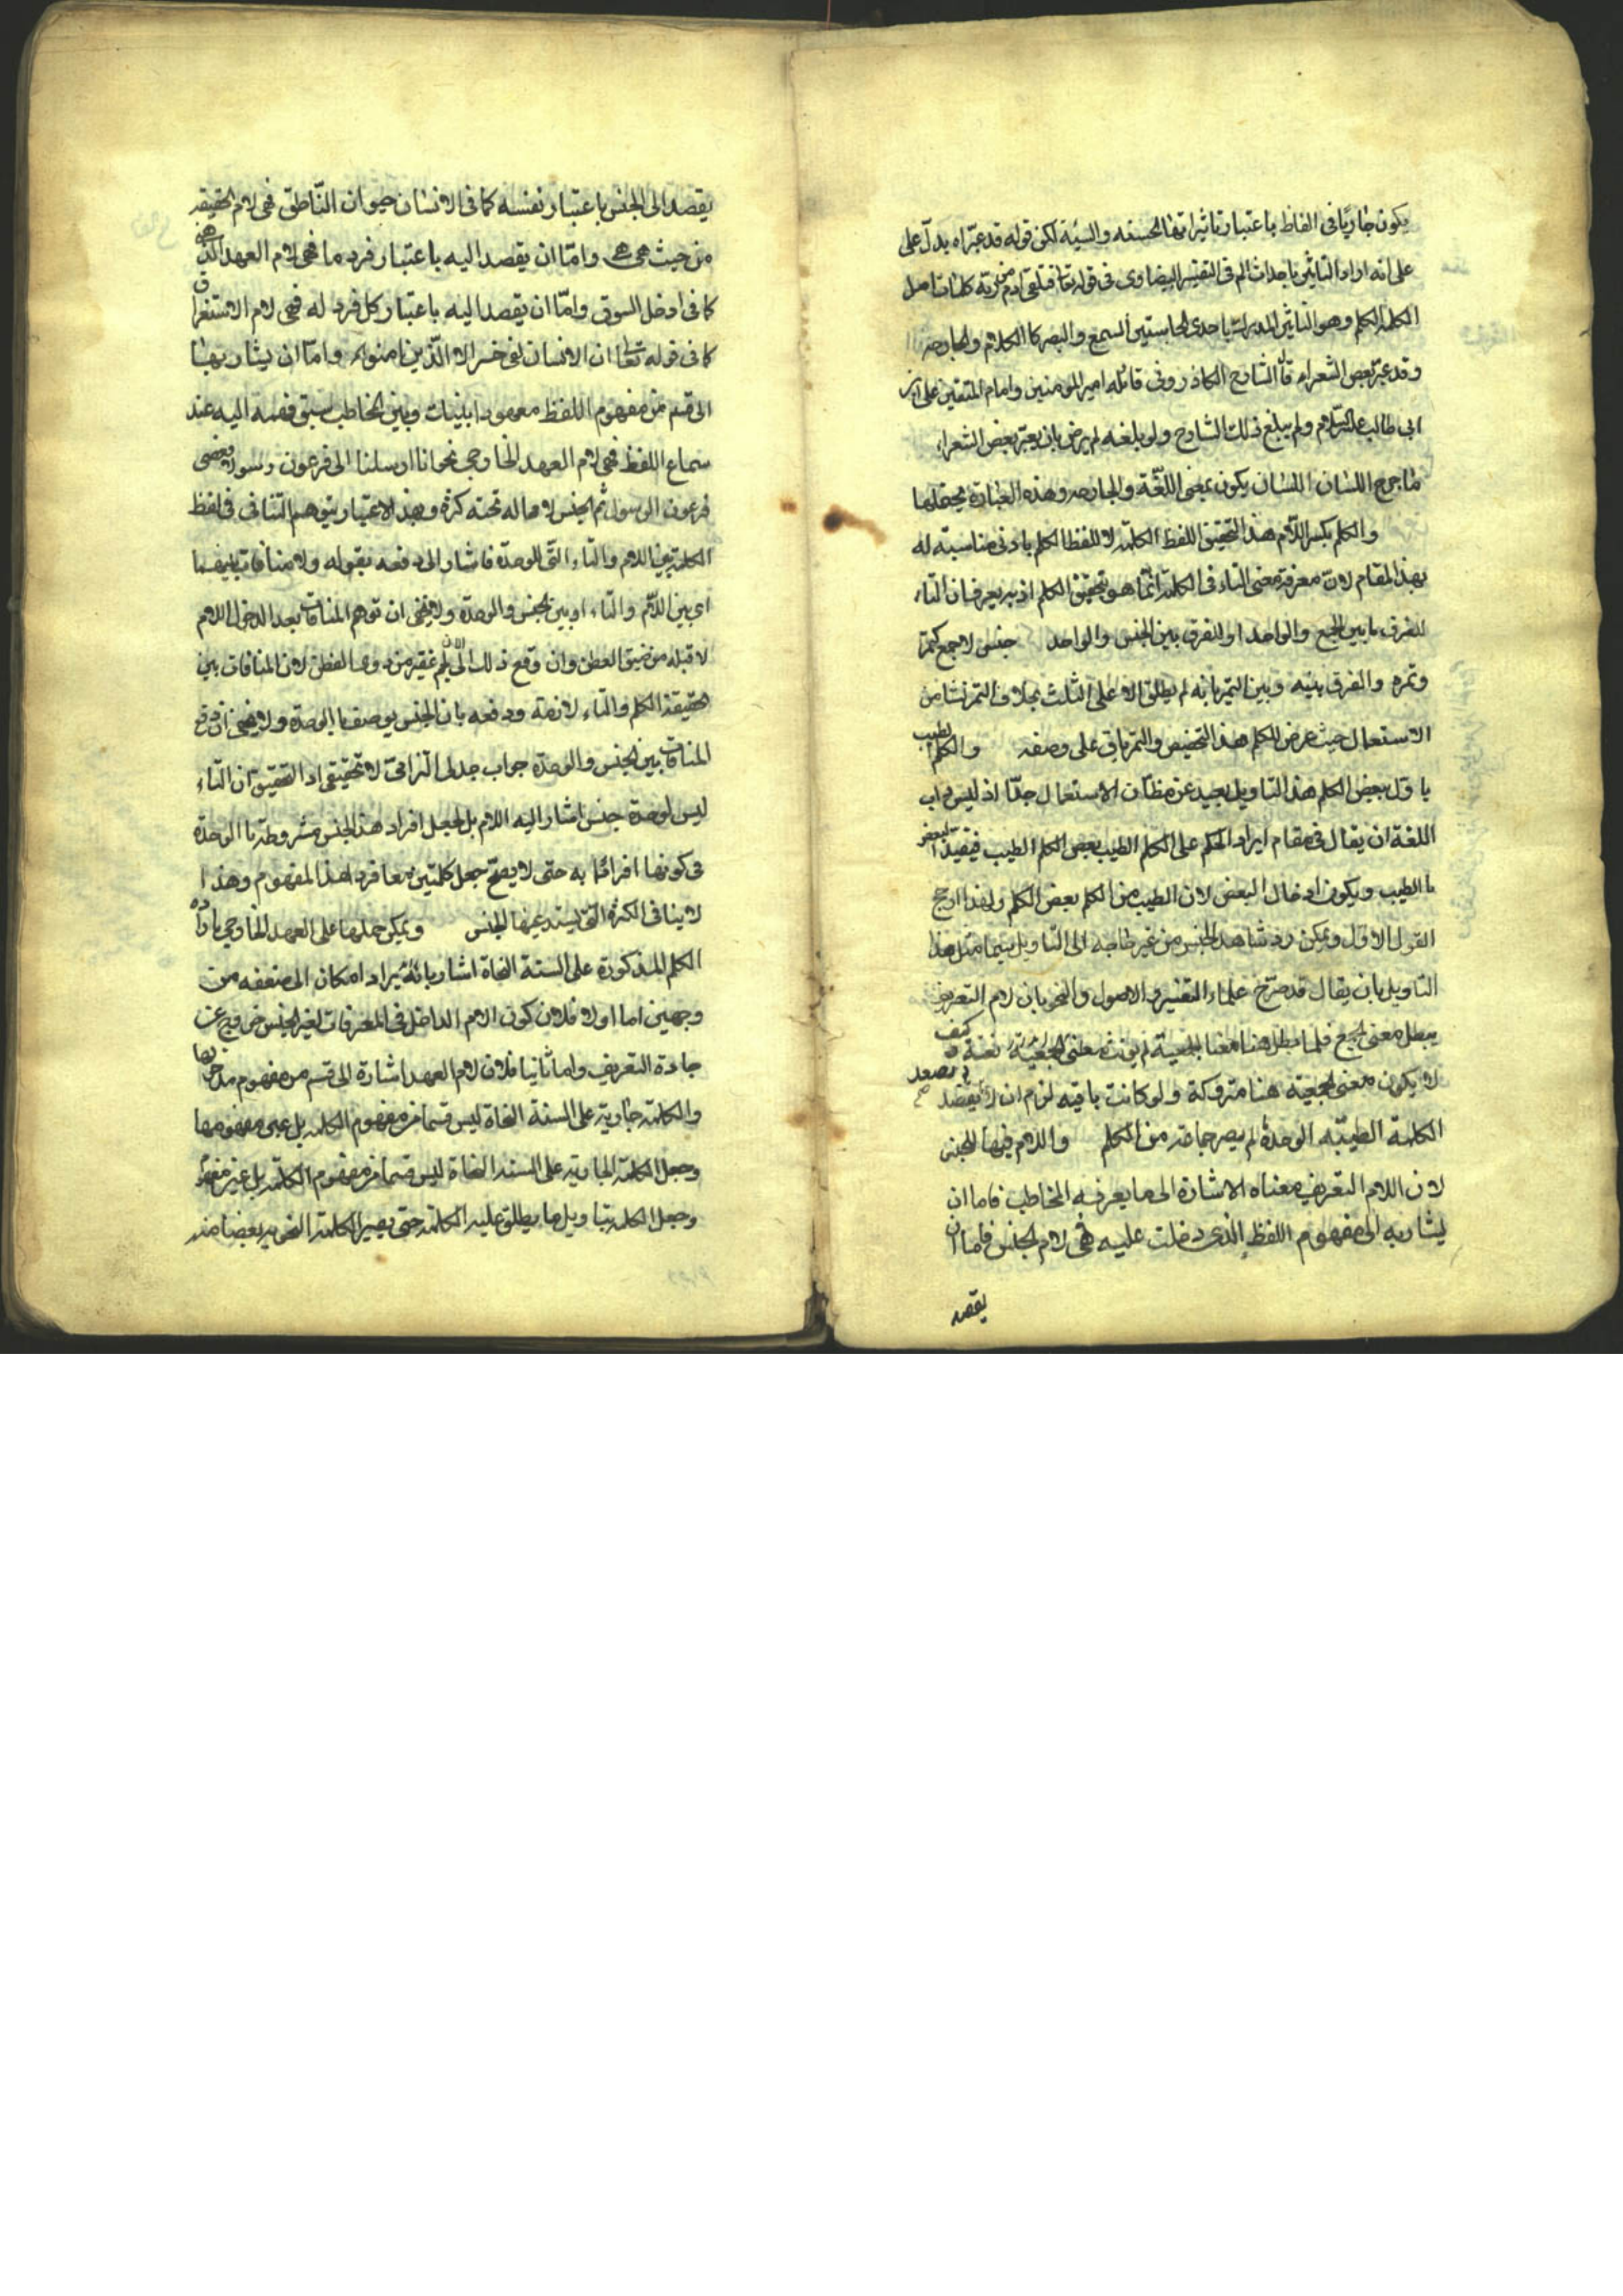 يكون جاريا فى الفاظ باعتبار تاثيراتها الحسنه والسيئة لكن قوله قد عبراه يدل على
على انه اراد التاثير باحداث الم فى التفسير البيضاوى فى قوله تعا فتلقى ادم من ربه كلمات اصل
الكلمة الكلم وهو التاثير المدرك باحدى الحاستين السمع والبصر كا الكلام والجارحه
وقد عبر بعض الشعراء قال الشارح الكاذرونى قائله امير المومنين وامام المتقين على ابن
ابى طالب عليه السلام ولم يبلغ ذلك الشارح ولو بلغه لم يرض بان يعبر ببعض الشعراء
ما جرح اللسان اللسان يكون بمعنى اللغة والجارحه وهذه العبارة يحتملها
والكلم بكسر اللام هذا لتحقيق اللفظ الكلمة لا للفظ الكلم بادنى مناسبته له
بهذا المقام لان معرفة معنى التاء فى الكلمة انما هو بتحقيق الكلم اذ به يعرف ان التاء
للفرق ما بين الجمع والواحد او للفرق بين الجنس والواحد جنس لا جمع كتمر
وتمره والفرق بينه وبين التمر بانه لم يطلق الا على الثلث بخلاف التمر نشا من
الاستعمال حيث عرض للكلم هذا التخصيص والتمر باقى على وصفه والكلم الطيب
ياول ببعض الكلم هذا التاويل بعيد عن مظان الاستعمال جدا اذ ليس داب
اللغة ان يقال فى مقام ايراد الحكم على الكلم الطيب بعض الكلم الطيب فيقيد البعض
با الطيب ويكون ادخال البعض لان الطيب من الكلم بعض الكلم ولهذا ارجح
القول الاول ويمكن رد شاهد الجنس من غير حاجه الى التاويل سيما مثل هذا
التاويل بان يقال قد صرح علماء التفسير والاصول والنحو بان لام التعريف
يبطل معنى الجمع فلما بطل هنا معنا الجمعية لم يونث معنى الجمعية نعته وكيف
لا يكون معنى الجمعية هنا متروكة ولو كانت باقيه لزم ان لا يصعد
الكلمة الطيبه الوحدة لم يصر جماعة من الكلم واللام فيها للجنس
لان اللام التعريف معناه الاشارة الى ما يعرفه المخاطب فاما ان
يشار به الى مفهوم اللفظ الذى دخلت عليه فهى لام الجنس فاما ان
يقصد
يقصد الى الجنس باعتبار نفسه كما فى الانسان حيوان الناطق فهى لام الحقيقه
من حيث هى هى واما ان يقصد اليه باعتبار فرد ما فهى لام العهد الذهنى
كما فى ادخل السوق واما ان يقصد اليه باعتبار كل فرد له فهى لام الاستغراق
كما فى قوله تعا ان الانسان لفى خسر الا الذين امنوا واما ان يشار بها
الى قسم من مفهوم اللفظ معهودا بينك وبين المخاطب سبق فهمه اليه عند
سماع اللفظ فهى لام العهد الخارجى نحو انا ارسلنا الى فرعون رسولا فعصى
فرعون الرسول ثم الجنس لا حاله تحته كثرة وبهذا الاعتبار يتوهم التنافى فى لفظ
الكلمة بين اللام والتاء التى للوحدة فاشار الى دفعه بقوله ولا منافات بينهما
اى بين اللام والتاء او بين الجنس والوحدة ولا يخفى ان توهم المنافات بعد الدخول اللام
لا قبله من ضيق العطن وان وقع ذلك
حقيقة الكلم والتاء لازمة ودفعه بان الجنس يوصف با الوحدة ولا يخفى ان دفع
المنافات بين الجنس والوحدة جواب جدلى الزامى لا تحقيقى اذ التحقيق ان التاء
ليس لوحدة جنس اشار اليه اللام بل لجعل افراد هذا الجنس مشروطة با الوحدة
فى كونها افرادا به حتى لا يصح جعل كلمتين معا فردا لهذا المفهوم وهذا
لا ينافى الكثرة التى يستدعيها الجنس ويمكن حملها على العهد الخارجى بارادة
الكلم المذكورة على السنة النحاة اشار بانه يراد امكان الى ضعفه من
وجهين اما اولا فلان كون اللام الداخل فى المعرفات لغير الجنس خروج عن
جادة التعريف واما ثانيا فلان لام العهد اشارة الى قسم من مفهوم مدخولها
والكلمة جارية على السنة النحاة ليس قسما من مفهوم الكلمة بل عين مفهومها
وجعل الكلمة الجارية على السنة النحاة ليس قسما من مفهوم الكلمة بل عين مفهومها
وجعل الكلمة بتاويل ما يطلق عليه الكلمة حتى يصير الكلمة النحويه بعضا منه